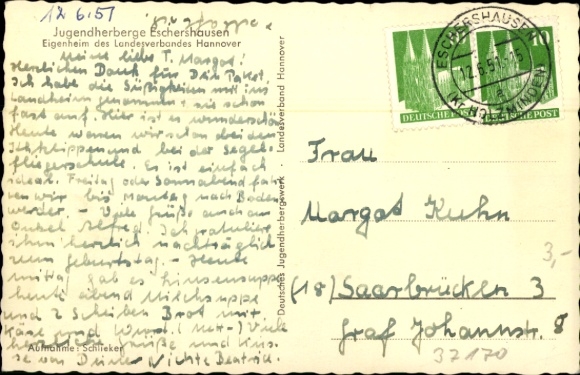 12.6.51
Jugendherberge Eschershausen
Eigenheim des Landesverbandes Hannover
Meine liebe T. Margot!
Herzlichen Dank für Dein Paket.
Ich habe die Süßigkeiten mit ins
Landheim genommen, sie schon
fast auf. Hier ist es wunderschön
Heute waren wir schon bei den
Ithklippen und bei der Segel-
fliegerschule. Es ist einfach
ideal. Freitag oder Sonnabend fah-
ren wir bis Montag nach Boden-
werder. - Viele Grüße auch an
Onkel Alfred. Ich gratuliere
ihm herzlich nachträglich
zum Geburtstag. - Heute
mittag gab es Linsensuppe
heute abend Milchsuppe
und 2 Scheiben Brot mit
Käse und Wurst. (Mett-) Viele
herzliche Grüße und Küs-
se von Deiner Nichte Beatrix.
Aufnahme: Schlieker
Deutsches Jugendherbergswerk · Landesverband Hannover
ESCHERSHAUSEN
12.6.51
(KR. HOLZMINDEN)
a
10
DEUTSCHE POST
DEUTSCHE POST
Frau
Margot Kuhn
(18) Saarbrücken 3
Graf Johannstr. 8
3,-
37170